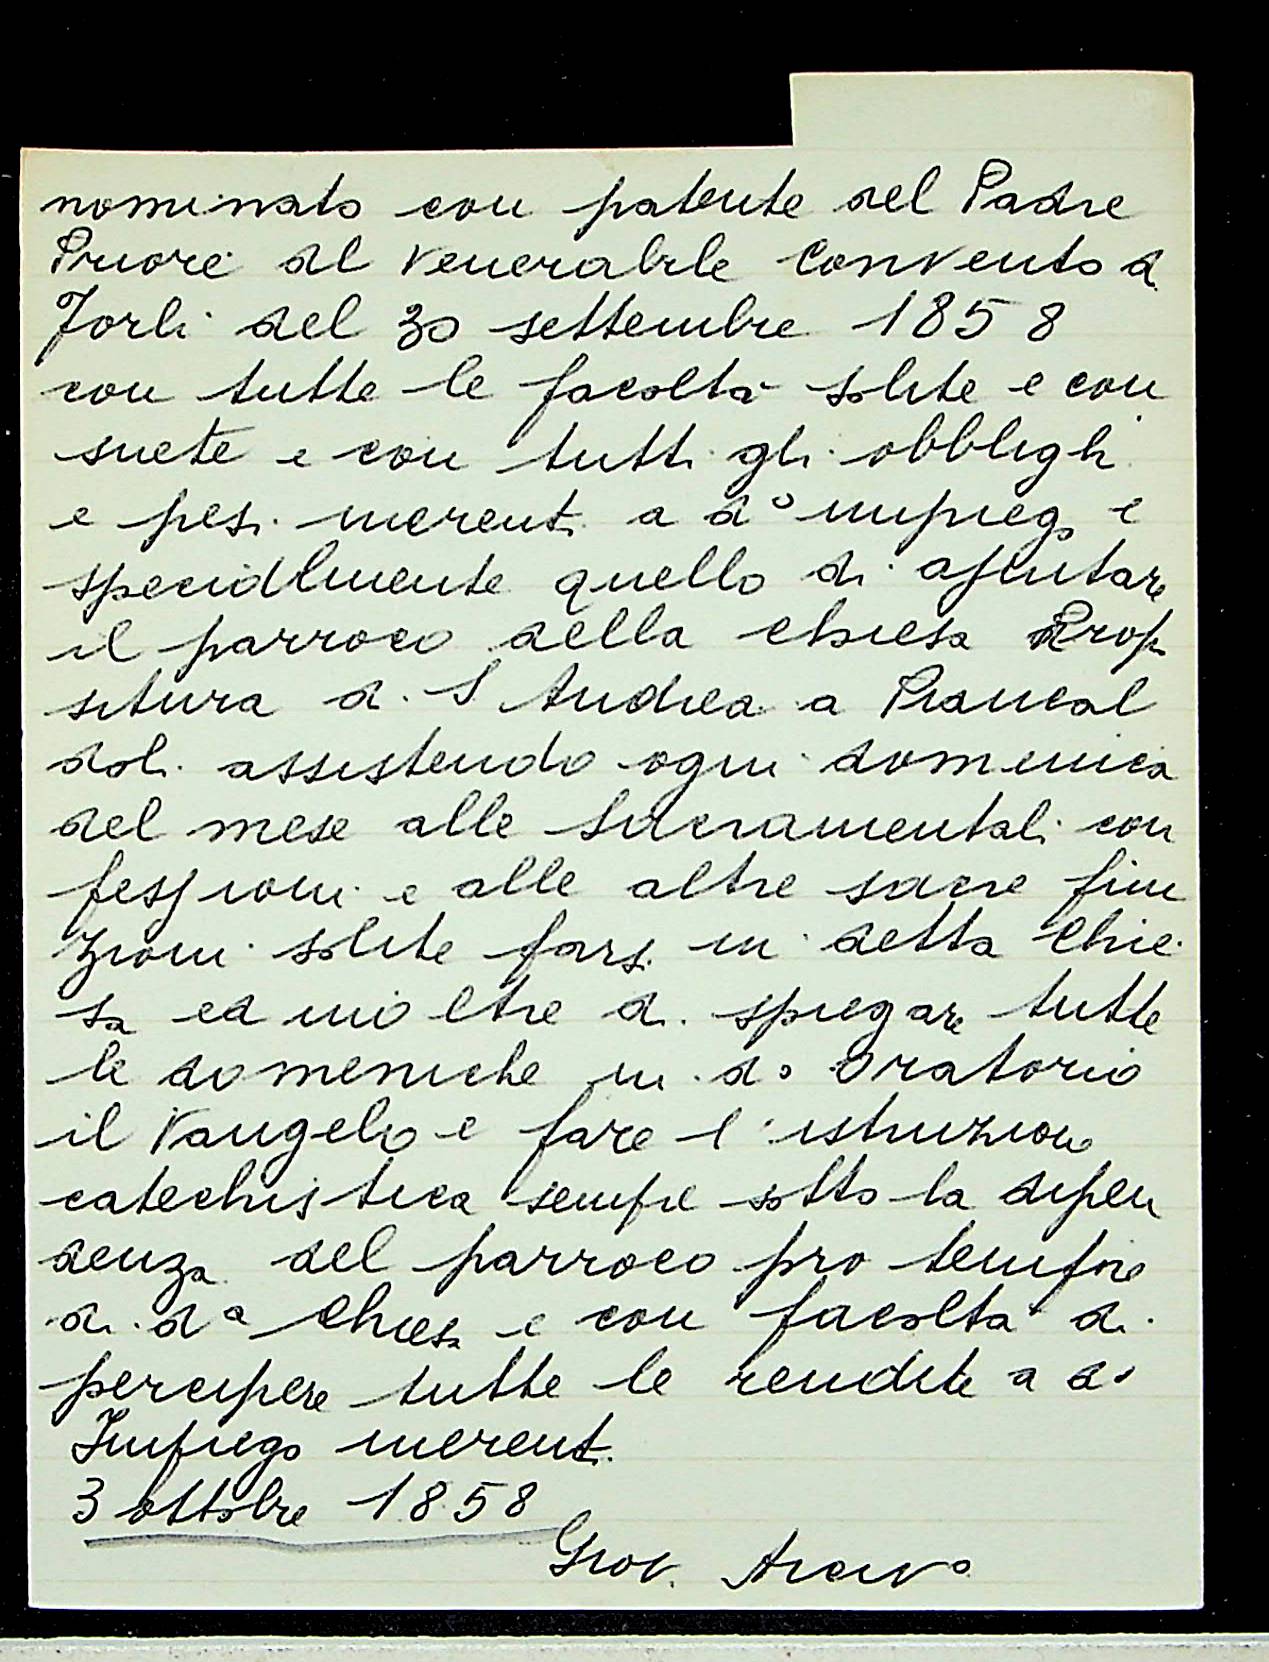 nominato con patente del Padre
Priore del Venerabile Convento di
Forlì del 30 settembre 1858
con tutte le facoltà solite e con
suete e con tutti gli obblighi
e pesi inerenti a d° impiego e
specialmente quello di ajutare
il parroco della chiesa Prop
situra di S Andrea a Piancal
doli assistendo ogni domenica
del mese alle Sacramentali con
fessioni e alle altre sacre fun
zioni solite farsi in detta Chie
sa ed inoltre di spiegare tutte
le domeniche in d° Oratorio
il Vangelo e fare l'istruzione
catechistica sempre sotto la dipen
denza del parroco pro tempore
di dª Chiesa e con facoltà di
percipere tutte le rendite a d°
Impiego inerenti.
3 ottobre 1858
Giov. Arciv°